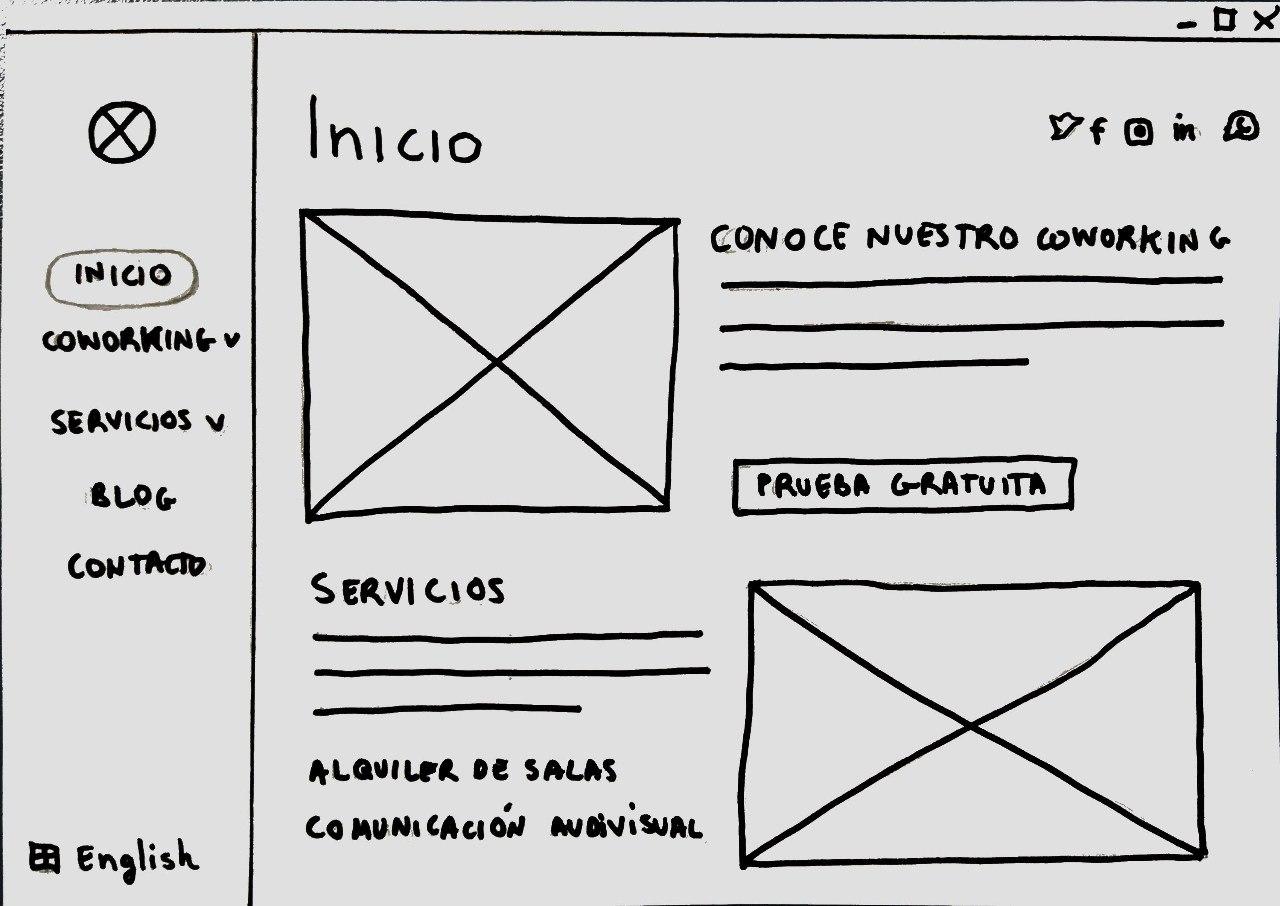 Inicio
INICIO
COWORKING
SERVICIOS
BLOG
CONTACTO
English
CONOCE NUESTRO COWORKING
PRUEBA GRATUITA
SERVICIOS
ALQUILER DE SALAS
COMUNICACIÓN AUDIVISUAL